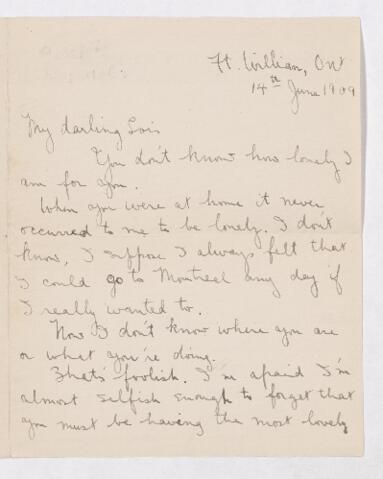 Ft. William, Ont
14th June 1909
My darling Lois
You don't know how lonely I
am for you.
When you were at home it never
occurred to me to be lonely. I don't
know, I suppose I always felt that
I could go to Montreal any day if
I really wanted to.
Now I don't know where you are
or what you're doing.
That's foolish. I'm afraid I'm
almost selfish enough to forget that
you must be having the most lovely